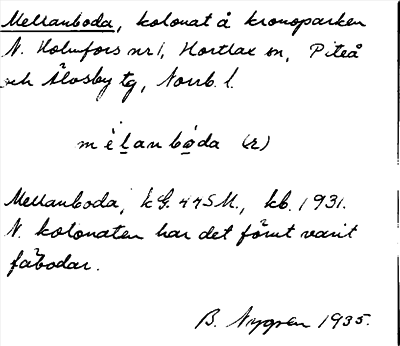 Mellanboda, kolonat å kronoparken
N. Holmfors nr 1, Hortlax sn, Piteå
och Älvsby tg, Norrb. l.
mèlanbo̲da (2)
Mellanboda, kG. 445M., kb. 1931.
N. kolonaten har det förut varit
fäbodar.
B. Nygren 1935.